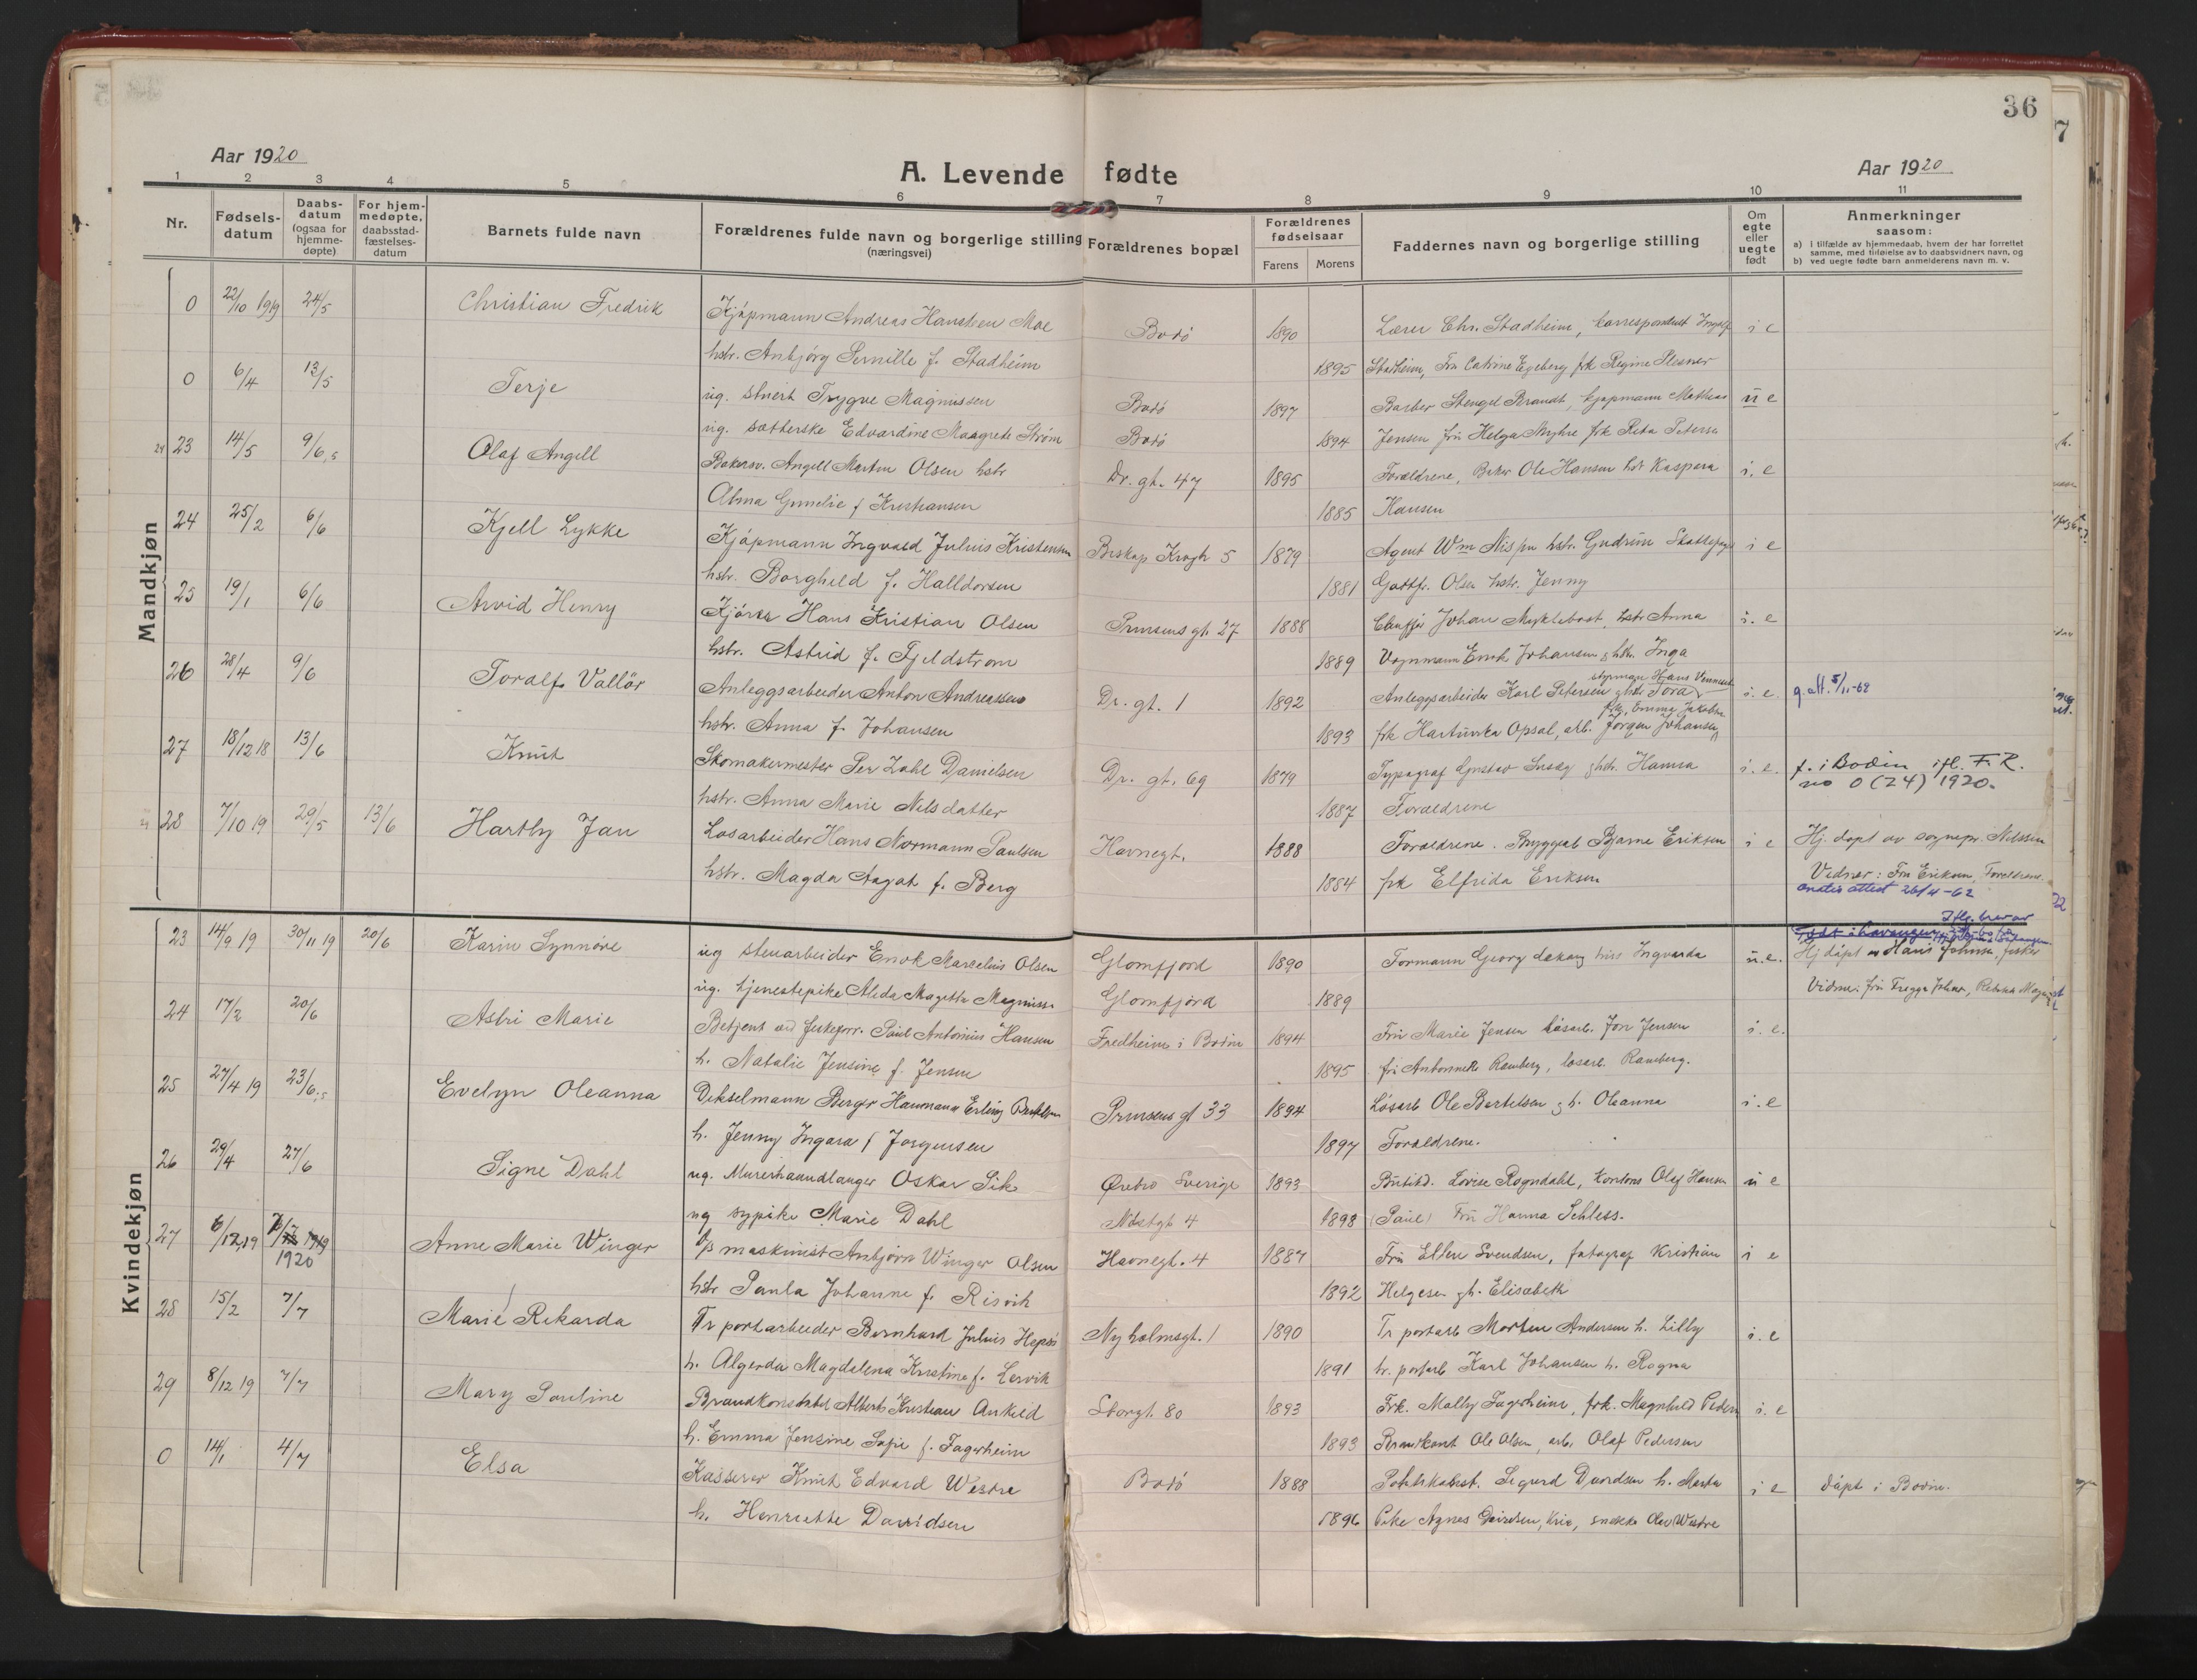 36
Aar 1920
A. Levende fødte
Aar 1920
1 2 3 4 5 6 7 8 9 10 11
Nr.
Fødsels-
datum
Daabs-
datum
(ogsaa for
hjemme-
døpte)
For hjem-
medøpte,
daabsstad-
fæstelses-
datum
Barnets fulde navn
Forældrenes fulde navn og borgerlige stilling
(næringsvei)
Forældrenes bopæl
Forældrenes
fødselsaar
Farens Morens
Faddernes navn og borgerlige stilling
Om
egte
eller
uegte
født
Anmerkninger
saasom:
a) i tilfælde av hjemmedaab, hvem der har forrettet
samme, med tilføielse av to daabsvidners navn, og
b) ved uegte fødte barn anmelderens navn m. v.
Mandkjøn
0 22/10 1919 24/5 Christian Fredrik Kjøpmann Andreas Moe Bodø 1890 Lærer Chr. Stadheim, i e
hstr. Anbjørg Pernille f. Stadheim 1895 Stadheim, Fru Catrine Egeberg frk Regine
0 6/4 13/5 Terje ug. Trygve Magnussen Bodø 1897 Barber Stengel Brandt, kjøpmann Mathias u e
ug. Edvardine Maagrete Strøm Bodø 1894 Jensen fru Helga Myhre frk
23 14/5 9/6 Olaf Angell Bakersv. Angell Martin Olsen hstr Dr. gt. 47 1895 Forældrene, Baker Ole Hansen hst Kaspara i. e
Alma f Kristiansen 1885 Hansen
24 25/2 6/6 Kjell Lykke Kjøpmann Ingvald Julius Kristensen Biskop Krogh 5 1879 Agent Wm hstr. Gudrun i e
hstr. Borghild f. Halldorsen 1881 Gottfr. Olsen hstr. Jenny
25 19/1 6/6 Arvid Henry Kjører Hans Kristian Olsen Prinsens gt. 27 1888 Johan Myklebost, hstr Anna i. e
hstr. Astrid f. Fjeldstrøm 1889 Vognmann Johansen hstr. Inga
styrman Hans
26 28/4 9/6 Toralf Vallør Anleggsarbeider Anton Andreassen Dr. gt. 1 1892 Anleggsarbeider Karl Petersen hstr Tora i. e. g. att. 5/11-62
frk. Emma
hstr. Anna f. Johansen 1893 frk Hartvikka Opsal, arb. Jørgen Johansen
27 18/12 18 13/6 Knut Skomakermester Per Zahl Danielsen Dr. gt. 69 1879 Typograf Gustav hstr. Hanna i. e. f. i Bodin ifl. F. R.
no 0 (24) 1920.
hstr. Anna Marie Nilsdatter 1887 Forældrene
28 7/10 19 29/5 13/6 Hartly Jan Løsarbeider Hans Normann Paulsen Havnegt. 1888 Forældrene. Bjarne Eriksen i e Hj. døpt av sognepr. Nilssen
hstr. Magda Aagat f. Berg 1884 frk Elfrida Eriksen Vidner: Fru Eriksen, Forældrene
gratis attest 26/4-62
Kvindekjøn
23 14/9 19 30/11 19 20/6 Karin Synnøve ug stenarbeider Enok Marcelius Olsen Glomfjord 1890 Formann Georg Ingvarda u. e. Hj døpt av Hans Johnsen, fisker
ug. tjenestepike Alida Magetta Magnuss. Glomfjord 1889
24 17/2 20/6 Astri Marie Betjent Paul Antonius Hansen Fredheim i Bodin 1894 Fru Marie Jensen løsarb. Jon Jensen i. e.
h. Natalie Jensine f. Jensen 1895 fru Ramberg, løsarb. Ramberg.
25 27/4 19 23/6 Evelyn Oleanna Dekselmann Berger Haumann Erling Bertelsen Prinsens gt 33 1894 Løsarb Ole Bertelsen h. Oleanna i. e
h. Jenny Ingara f Jørgensen 1897 Forældrene.
26 29/4 27/6 Signe Dahl ug. Murerhaandlanger Oskar Sik Ørebro Sverige 1893 Lovise Rogndahl, Olaf Hansen u e
ug sypike Marie Dahl 4 1898 Fru Hanna Schless.
27 6/12 19 1920 Anne Marie Winger maskinist Anbjørn Winger Olsen Havnegt. 4 1887 Fru Ellen Svendsen, fotograf Kristian i e
hstr Paula Johanne f. Risvik 1892 Helgesen h. Elisabeth
28 15/2 7/7 Marie Rikarda Tr portarbeider Bernhard Julius Nyholmsgt. 1 1890 Tr portarb Morten Andersen h. Lilly i. e
h. Algerda Magdalena Kristine f. Lervik 1891 tr. portarb Karl Johansen h. Ragna
29 8/12 19 7/7 Mary Pauline Brandkonstabel Albert Kristian Storgt. 80 1893 Frk. Mally Fagerheim, frk. Magnhild i. e
h. Emma Jensine Sofie f. Fagerheim 1893 Ole Olsen, arb. Olaf Pedersen
0 14/1 4/7 Elsa Kasserer Knut Edvard Westre Bodø 1888 Sigurd Davidsen h. Marta i e døpt i Bodin.
h. Henriette Davidsen 1896 Pike Agnes Davidsen, Olav Westre